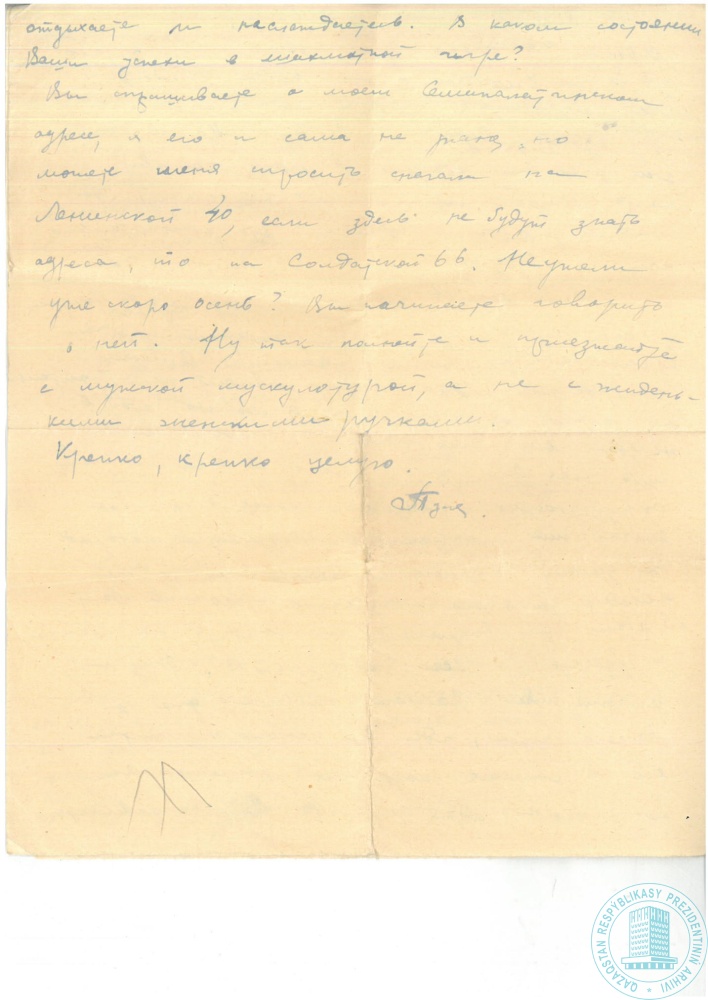 отдыхаете и наслаждаетесь. В каком состоянии
Ваши успехи в шахматной игре?
Вы спрашиваете о моем Семипалатинском
адресе, я его и сама не знаю, но
можете меня спросить сначала на
Ленинской 40, если здесь не будут знать
адреса, то на Солдатской 66. Неужели
уже скоро осень? Вы начинаете говорить
о ней. Ну так полнейте и приезжайте
с мужской мускулатурой, а не с жидень-
кими женскими ручками.
Крепко, крепко целую.
QAZAQSTAN RESPÝBLIKASY PREZIDENTINIŃ ARHIVI